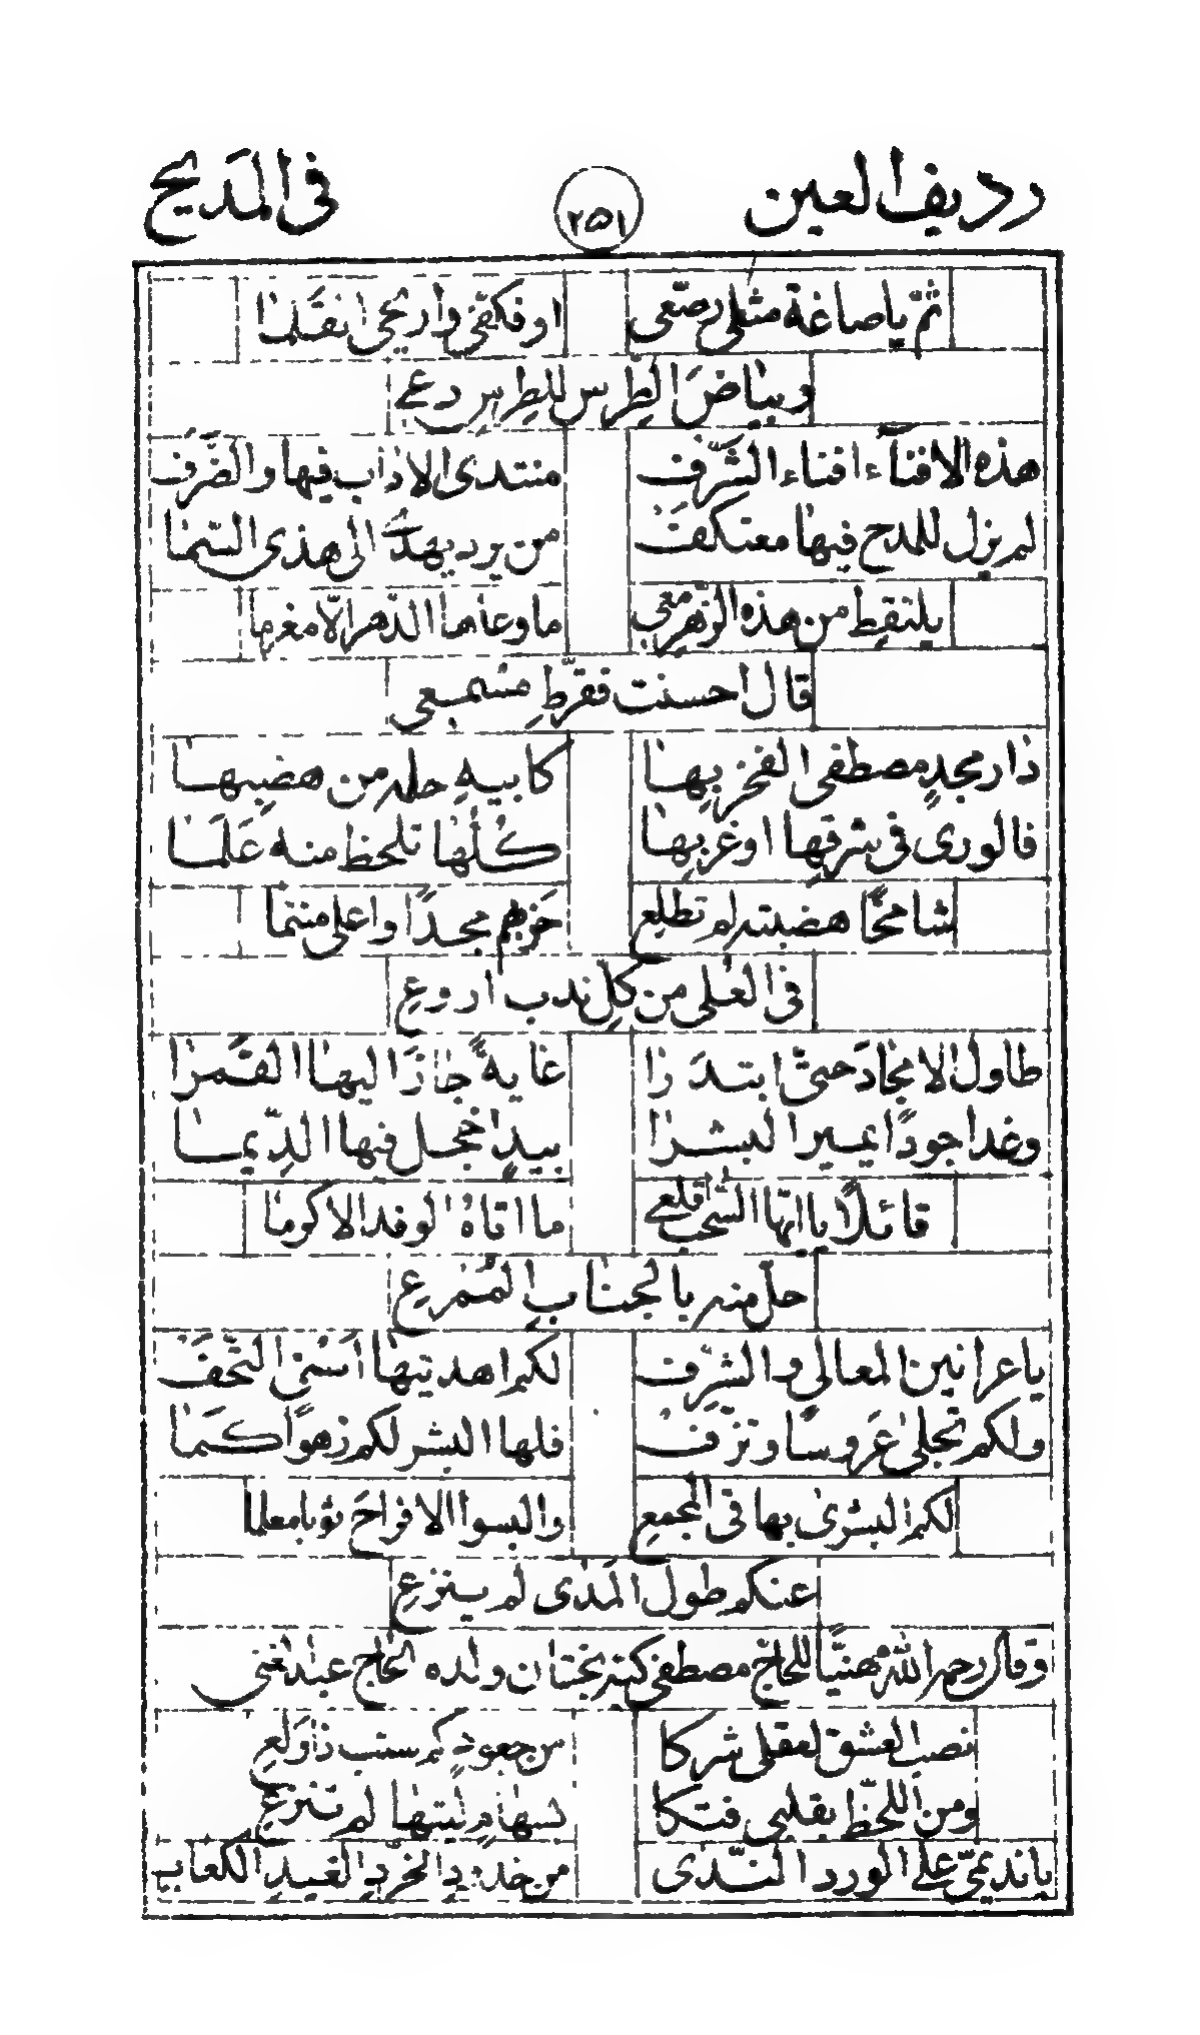 رديف العين ٢٥١ في المديح
ثمّ يا صاغة مثلي رصّعي او فكفّي واريحي انقلما
وبياضَ الطِرس للطِرسِ دعي
هذه الافنآء افناء الشَّرَف منتدى الاداب فيها والظَّرَف
لم يزل للمدح فيها معتكَف من يرد يهدَ الى هذي السّما
يلتقط من هذه الزهر معي ما وعاها الدّهر الّا مغرما
قال احسنت فقرّطِ مسمعي
دار مجدٍ مصطفى الفخر بها كابيهِ حله من هضبها
فالورى في شرقها او غربها كلّها تلحظ منه عَلَما
شامخًا هضبته لم تطلعِ خزهم مجدًا واعلى منتما
في العُلى من كلّ ندب اروعِ
طاول الامجادَ حتّى ابتدرا غايةً جازَ اليها القَمرا
وغدا جودًا يمير البشرا بيدٍ اخجل فيها الدِّيما
قائلًا يا ايّها السّحب اقلعي ما اتاهُ الوفد الا كرما
حلّ منه بالجنابِ المُمرعِ
يا عرانين المعالي والشرف لكم اهديتها اسنى التُّحَف
ولكم تجلى عَروسًا وتزف فلها البشر لكم زهوًا كَما
لكم البشرى بها في المجمعِ والبسوا الافراحَ ثوبا معلما
عنكم طول المَدى لم ينزعِ
وقال رحمه الله مهنيًّا للحاج مصطفى كبه بختان ولده الحاج عبد الغني
نصب العشق لعقلي شركا من جعودٍ كم سبت ذا ولَعِ
ومن اللحظ بقلبي فتكا بسهامٍ ليتها لم تنزعِ
يا نديمىّ على الورد النّدى من خدود الخرّدِ الغيدِ الكعاب